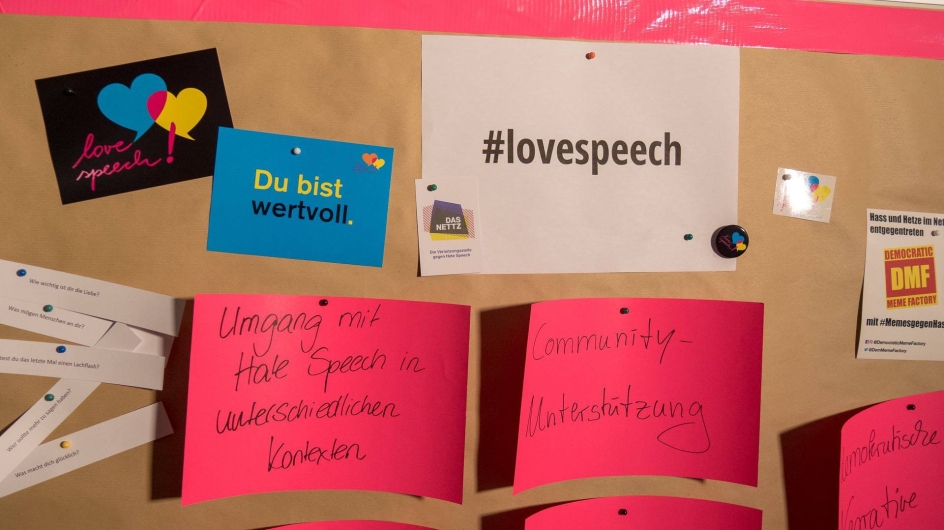 love
speech!
Du bist
wertvoll.
#lovespeech
DAS
NETTZ
Die Vernetzungsstelle
gegen Hate Speech
Hass und Hetze im Net
entgegentreten
DEMOCRATIC
DMF
MEME FACTORY
mit #MemesgegenHas
@DemocraticMemeFactory
@DemMemeFactory
Wie wichtig ist dir die Liebe?
Was mögen Menschen an dir?
test du das letzte Mal einen Lachflash?
Wer sollte mehr zu sagen haben?
Was macht dich glücklich?
Umgang mit
Hate Speech in
unterschiedlichen
Kontexten
Community-
Unterstützung
demokratische
Narrative